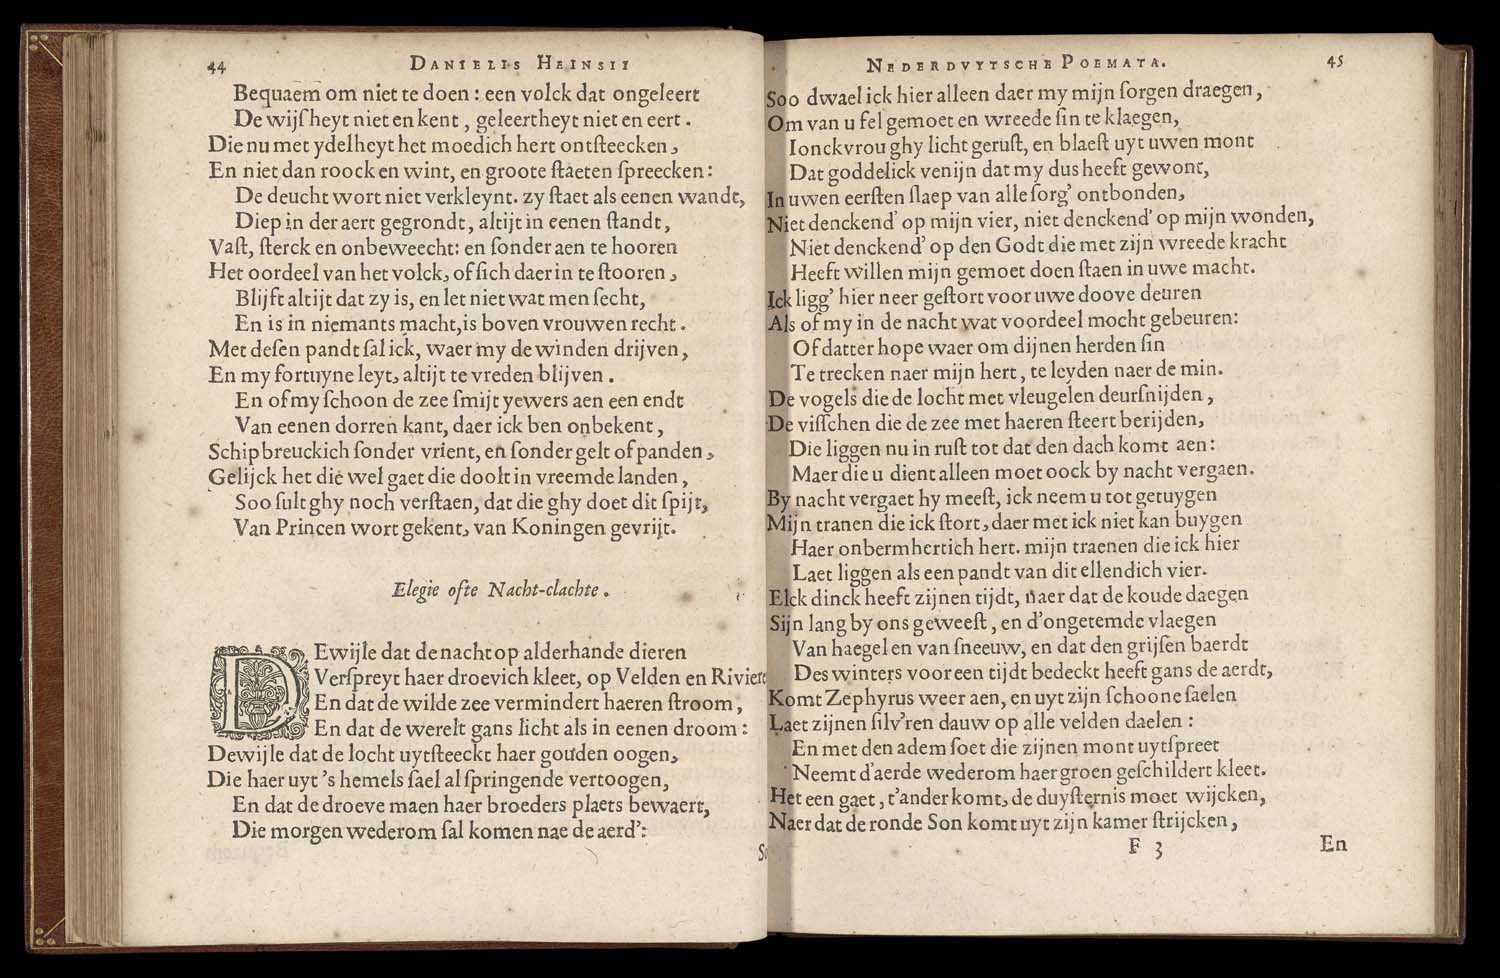 44
DANIELIS HEINSII
Bequaem om niet te doen : een volck dat ongeleert
De wijſheyt niet en kent, geleertheyt niet en eert.
Die nu met ydelheyt het moedich hert ontſteecken,
En niet dan roock en wint, en groote ſtaeten ſpreecken:
De deucht wort niet verkleynt. zy ſtaet als eenen wandt,
Diep in der aert gegrondt, altijt in eenen ſtandt,
Vaſt, ſterck en onbeweecht: en ſonder aen te hooren
Het oordeel van het volck, of ſich daer in te ſtooren,
Blijft altijt dat zy is, en let niet wat men ſecht,
En is in niemants macht, is boven vrouwen recht.
Met deſen pandt ſal ick, waer my de winden drijven,
En my fortuyne leyt, altijt te vreden blijven.
En of my ſchoon de zee ſmijt yewers aen een endt
Van eenen dorren kant, daer ick ben onbekent,
Schipbreuckich ſonder vrient, en ſonder gelt of panden,
Gelijck het die wel gaet die doolt in vreemde landen,
Soo ſult ghy noch verſtaen, dat die ghy doet dit ſpijt,
Van Princen wort gekent, van Koningen gevrijt.
Elegie ofte Nacht-clachte.
DEwijle dat de nacht op alderhande dieren
Verſpreyt haer droevich kleet, op Velden en Riviere
En dat de wilde zee vermindert haeren ſtroom,
En dat de werelt gans licht als in eenen droom:
Dewijle dat de locht uytſteeckt haer gouden oogen,
Die haer uyt 's hemels ſael al ſpringende vertoogen,
En dat de droeve maen haer broeders plaets bewaert,
Die morgen wederom ſal komen nae de aerd':
NEDERDVYTSCHE POEMATA.
45
Soo dwael ick hier alleen daer my mijn ſorgen draegen,
Om van u fel gemoet en wreede ſin te klaegen,
Ionckvrou ghy licht geruſt, en blaeſt uyt uwen mont
Dat goddelick venijn dat my dus heeft gewont,
In uwen eerſten ſlaep van alle ſorg' ontbonden,
Niet denckend' op mijn vier, niet denckend' op mijn wonden,
Niet denckend' op den Godt die met zijn wreede kracht
Heeft willen mijn gemoet doen ſtaen in uwe macht.
Ick ligg' hier neer geſtort voor uwe doove deuren
Als of my in de nacht wat voordeel mocht gebeuren:
Of datter hope waer om dijnen herden ſin
Te trecken naer mijn hert, te leyden naer de min.
De vogels die de locht met vleugelen deurſnijden,
De viſſchen die de zee met haeren ſteert berijden,
Die liggen nu in ruſt tot dat den dach komt aen:
Maer die u dient alleen moet oock by nacht vergaen.
By nacht vergaet hy meeſt, ick neem u tot getuygen
Mijn tranen die ick ſtort, daer met ick niet kan buygen
Haer onbermhertich hert. mijn traenen die ick hier
Laet liggen als een pandt van dit ellendich vier.
Elck dinck heeft zijnen tijdt, naer dat de koude daegen
Sijn lang by ons geweeſt, en d'ongetemde vlaegen
Van haegel en van ſneeuw, en dat den grijſen baerdt
Des winters voor een tijdt bedeckt heeft gans de aerdt,
Komt Zephyrus weer aen, en uyt zijn ſchoone ſaelen
Laet zijnen ſilv'ren dauw op alle velden daelen :
En met den adem ſoet die zijnen mont uytſpreet
Neemt d'aerde wederom haer groen geſchildert kleet.
Het een gaet, t'ander komt, de duyſternis moet wijcken,
Naer dat de ronde Son komt uyt zijn kamer ſtrijcken,
F 3
En